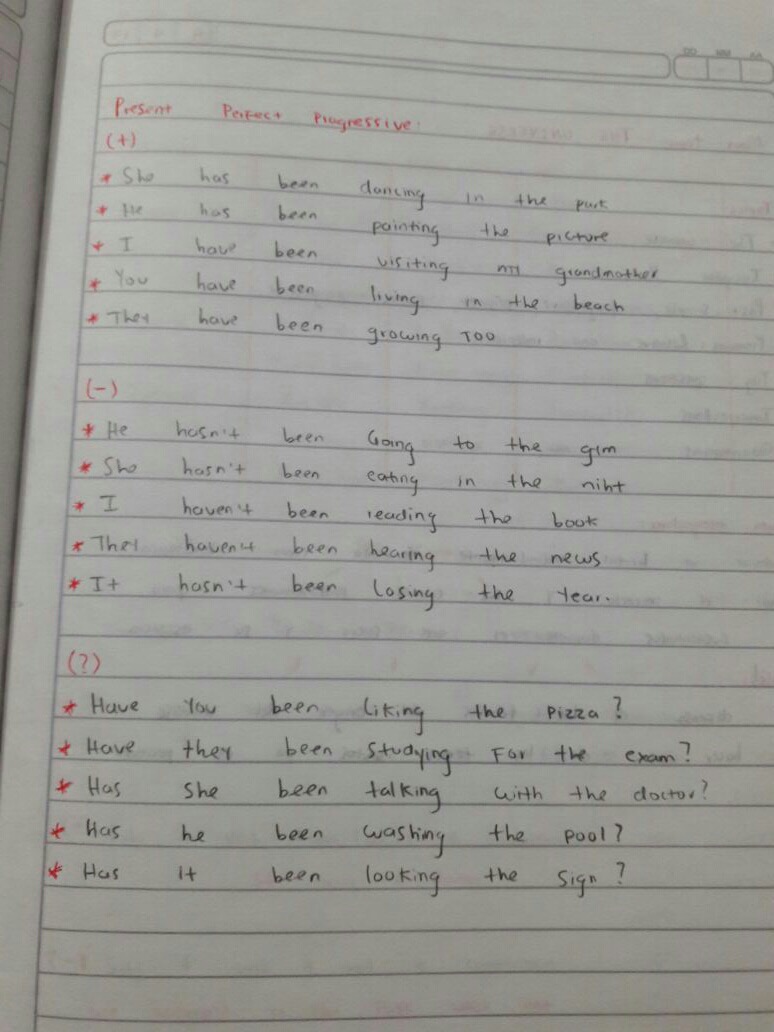 Present Perfect Progressive.
(+)
* She has been dancing in the park
* He has been painting the picture
* I have been visiting my grandmother
* You have been living in the beach
* They have been growing Too
(-)
* He hasn't been Going to the gim
* She hasn't been eating in the niht
* I haven't been reading the book
* They haven't been hearing the news
* It hasn't been Losing the Year.
(?)
* Have You been Liking the Pizza?
* Have they been Studying For the exam?
* Has she been talking with the doctor?
* Has he been washing the pool?
* Has it been looking the sign?